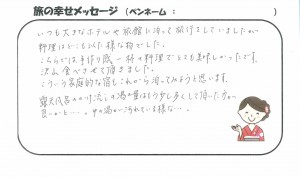 旅の幸せメッセージ (ペンネーム： )
いつも大きなホテルや旅館に泊って旅行をしていましたが
料理はどこも似た様な物でした。
こちらでは手作り感一杯の料理でとても美味しかったです。
沢山食べさせて頂きました。
こういう家庭的な宿もこれから泊ってみようと思います。
露天風呂のかけ流しの湯の量はもう少し多くして頂いた方が
良いかと…。中の湯が汚れている様な…。